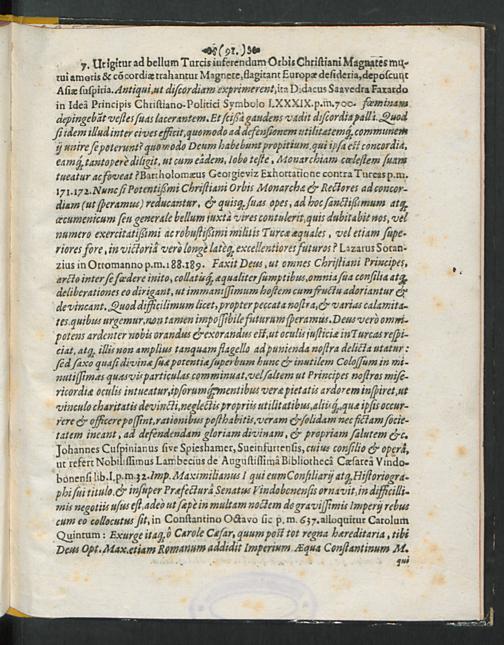 (91.)
7. Ut igitur ad bellum Turcis inferendum Orbis Christiani Magnates mu-
tui amoris & cõcordiæ trahantur Magnete, flagitant Europæ desideria, deposcunt
Asiæ suspiria. Antiqui, ut discordiam exprimerent, ita Didacus Saavedra Faxardo
in Ideâ Principis Christiano-Politici Symbolo LXXXIX. p.m. 700. fœminam
depingebãt vestes suas lacerantem. Et scissâ gaudens vadit discordia pallâ. Quod
si idem illud inter cives efficit, quomodo ad defensionem utilitatemq́; communem
ij unire se poterunt? quomodo Deum habebunt propitium, qui ipsa est concordia,
eamq́; tantoperè diligit, ut cum eâdem, Iobo teste, Monarchiam cœlestem suam
tueatur ac foveat? Bartholomæus Georgieviz Exhortatione contra Turcas p.m.
171. 172. Nunc si Potentissimi Christiani Orbis Monarchæ & Rectores ad concor-
diam (ut speramus) reducantur, & quisq; suas opes, ad hoc sanctissimum atq;
œcumenicum seu generale bellum juxtà vires contulerit, quis dubitabit nos, vel
numero exercitatissimi ac robustissimi militis Turcæ æquales, vel etiam supe-
riores fore, in victoriâ verò longè lateq; excellentiores futuros? Lazarus Soran-
zius in Ottomanno p.m. 188. 189. Faxit Deus, ut omnes Christiani Principes,
arcto inter se fœdere inito, collatisq́; æqualiter sumptibus, omnia sua consilia atq;
deliberationes eo dirigant, ut immanissimum hostem cum fructu adoriantur &
devincant. Quod difficilimum licet, propter peccata nostra, & varias calamita-
tes, quibus urgemur, non tamen impossibile futurum speramus. Deus verò omni-
potens ardenter nobis orandus & exorandus est, ut oculis justiciæ in Turcas respi-
ciat, atq; illis non amplius tanquam flagello ad punienda nostra delicta utatur:
sed saxo quasi divinæ suæ potentiæ superbum hunc & inutilem Colossum in mi-
nutissimas quasvis particulas comminuat, vel saltem ut Principes nostros mise-
ricordiæ oculis intueatur, ipsorumq́; mentibus veræ pietatis ardorem inspiret, ut
vinculo charitatis devincti, neglectis propriis utilitatibus, aliisq́; quæ ipsis occur-
rere & officere possint, rationibus posthabitis, veram & solidam nec fictam socie-
tatem ineant, ad defendendam gloriam divinam, & propriam salutem &c.
Johannes Cuspinianus sive Spieshamer, Sueinfurtensis, cuius consilio & operâ,
ut refert Nobilissimus Lambecius de Augustissimâ Bibliothecâ Cæsareâ Vindo-
bonensi lib. I. p.m. 32. Imp. Maximilianus I qui eum Consiliarij atq; Historiogra-
phi sui titulo & insuper Præfecturâ Senatus Vindobonensis ornavit, in difficilli-
mis negotiis usus est, adeò ut sæpè in multam noctem de gravissimis Imperij rebus
cum eo collocutus sit, in Constantino Octavo sic p.m. 637. alloquitur Carolum
Quintum: Exurge itaq; ô Carole Cæsar, quum post tot regna hæreditaria, tibi
Deus Opt. Max. etiam Romanum addidit Imperium Æqua Constantinum M.
qui